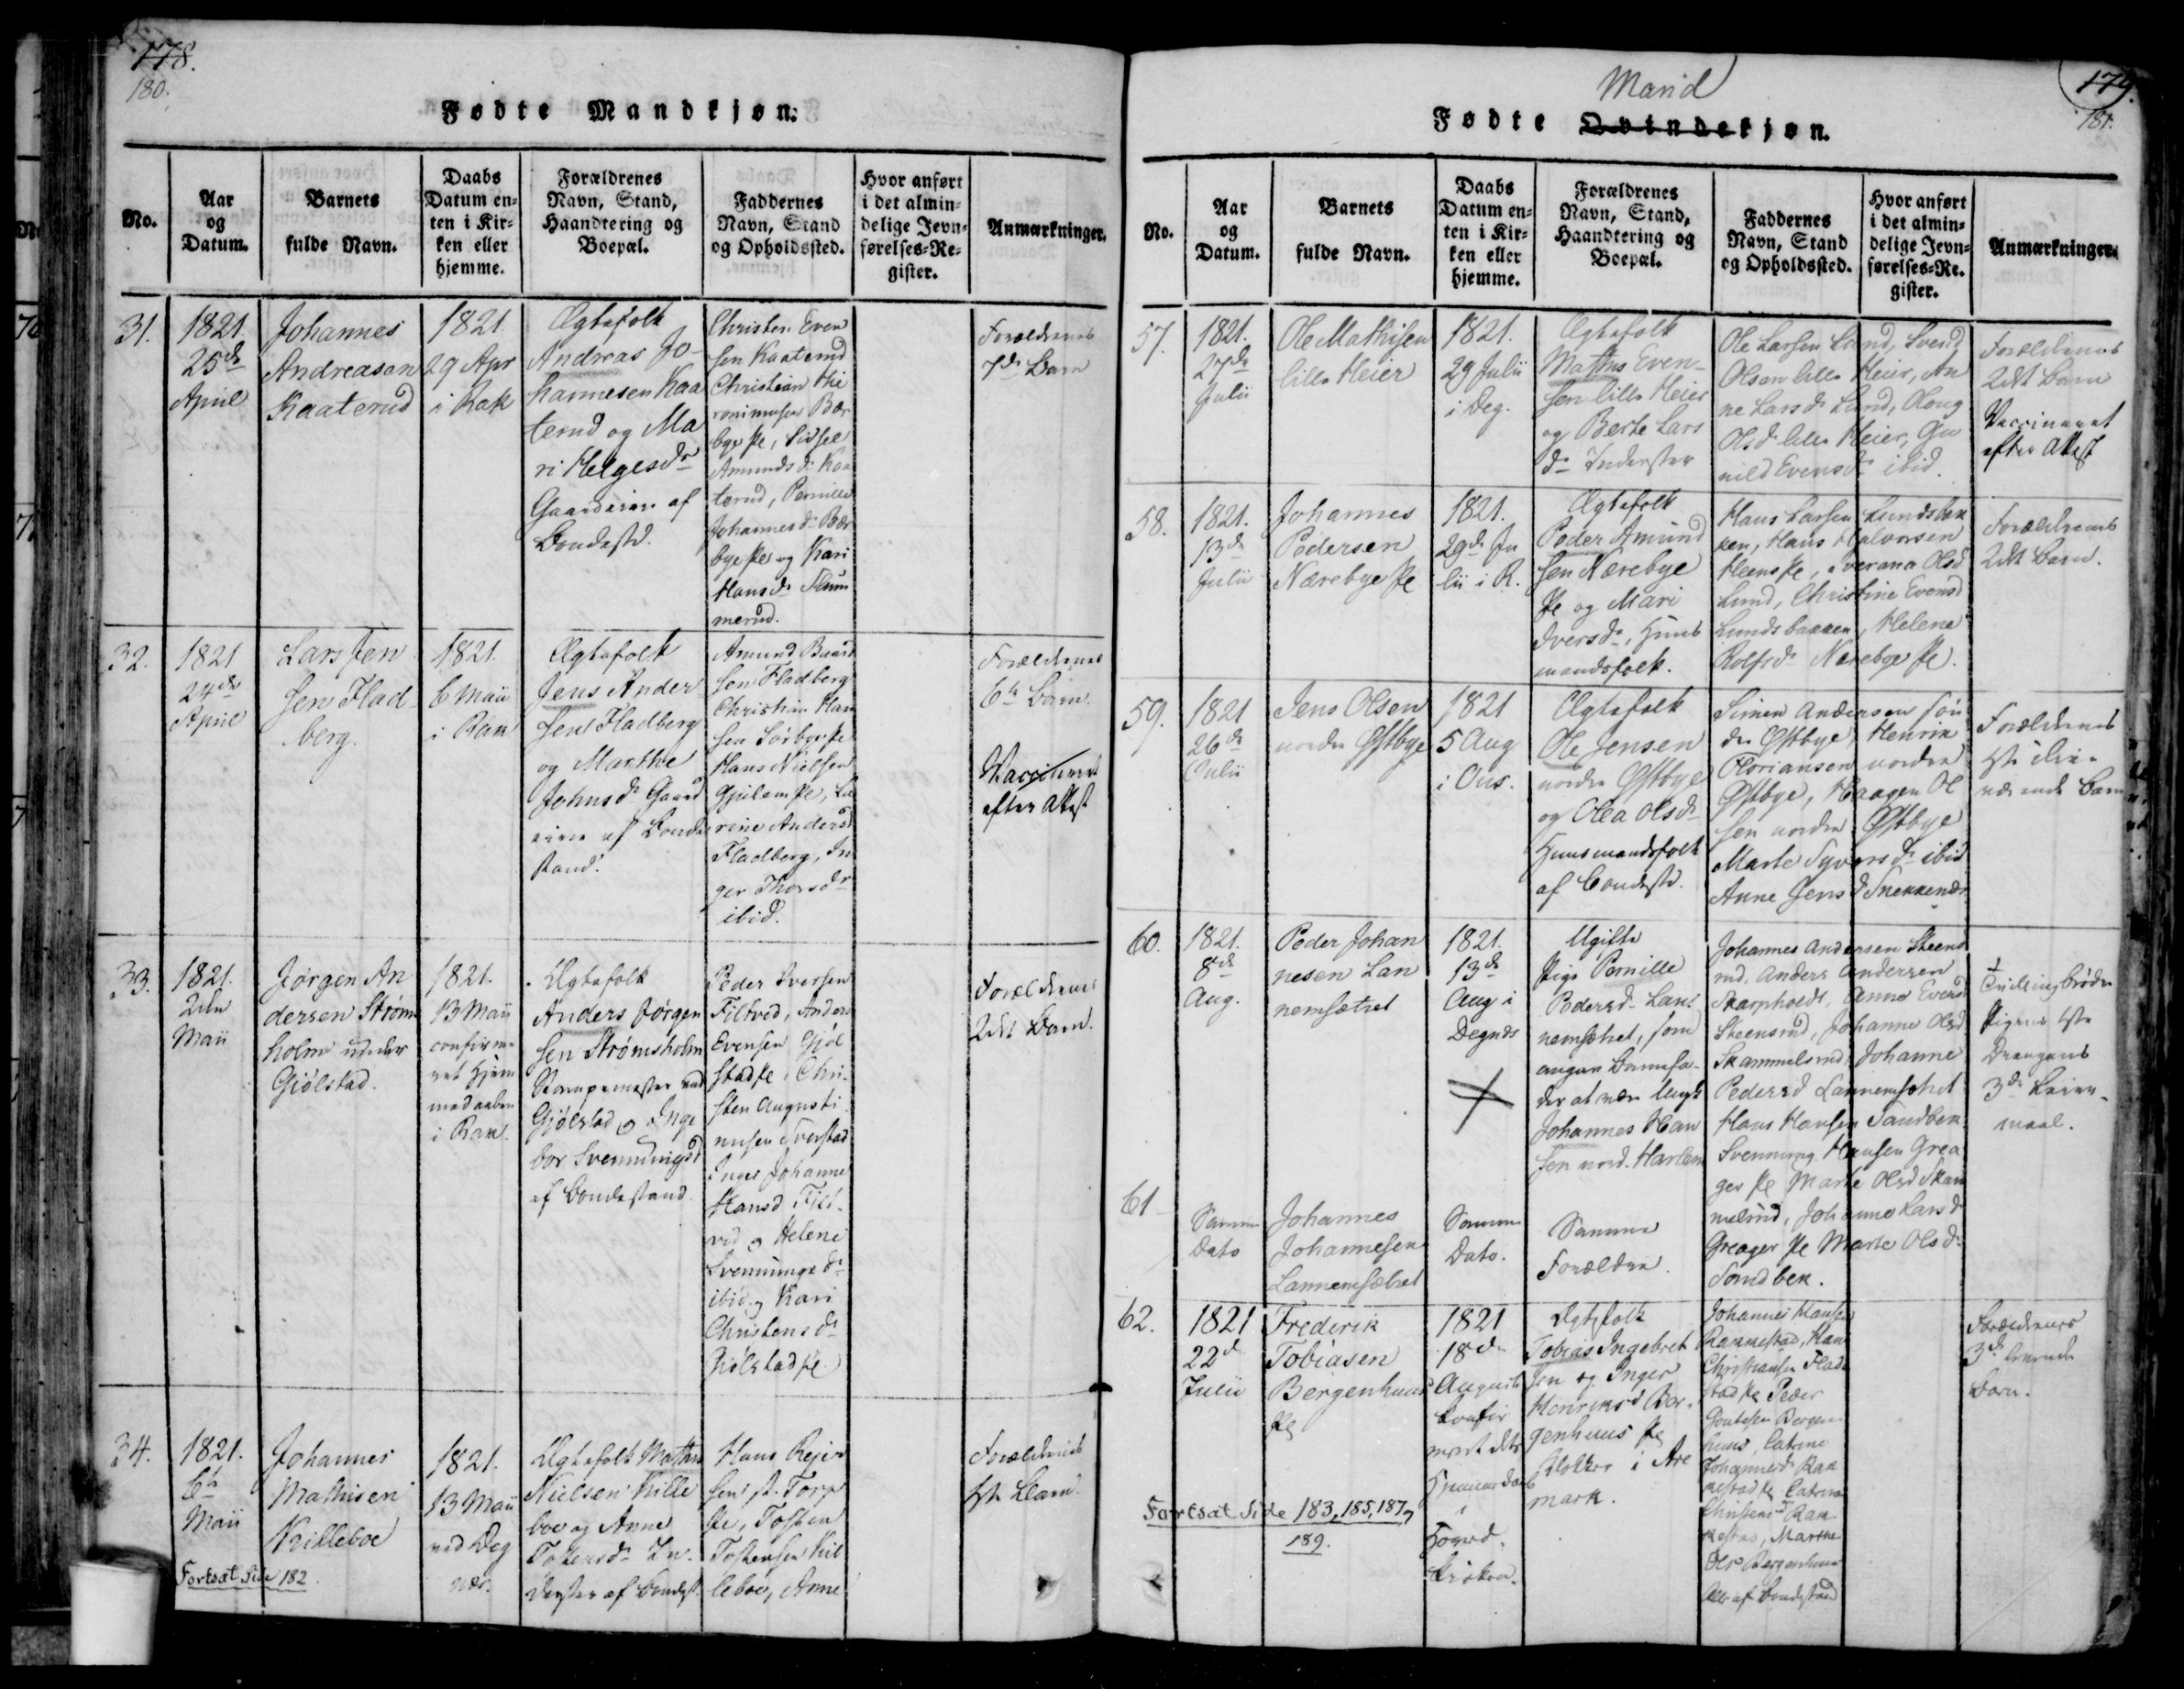 178.
180.
Fødte Mandkjøn.
No.
Aar
og
Datum.
Barnets
fulde Navn.
Daabs
Datum en-
ten i Kir-
ken eller
hjemme.
Forældrenes
Navn, Stand,
Haandtering og
Boepæl.
Faddernes
Navn, Stand
og Opholdssted.
Hvor anført
i det almin-
delige Jevn-
førelses-Re-
gister.
Anmærkninger.
31.
1821.
25de
April
Johannes
Andreasen
Kaaterud
1821.
29 Apr
i Rak
Ægtefolk
Andreas Jo-
hannesen Kaa
terud og Ma
ri Helgesdr
Gaardeiere af
Bondestd.
Christen Even
sen Kaaterud
Christian Hie
ronimusen Bær
bye Pe, Sidsel
Amundsdr Kaa
terud, Pernille
Johannesdr Bær
bye Pe og Kari
Hansdr Flum
merud.
Forældrenes
7de Barn
32.
1821
24de
April
Lars Jen
sen Flad
berg.
1821.
6 Maii
i Rak
Ægtefolk
Jens Ander
sen Fladberg
og Marthe
Johnsdr Gaard
eiere af Bonde
stand.
Amund Baard
sen Fladberg
Christian Han
sen Sørbye Pe
Hans Nielsen
rine Andersd
Fladberg, In
ger Thorsdr
ibid.
Forældrenes
6te Barn.
Vaccineret
efter Attest
33.
1821.
2den
Maii
Jørgen An
dersen Strøms
holm under
Gjølstad.
1821.
13 Maii
confirme
ret Hjem
medaaben
i Rak.
Ægtefolk
Anders Jørgen
sen Strømsholm
Stampemester ved
Gjølstad og Inge
bor Svenningsd
af Bondestand.
Peder Iversen
Filtved, Anders
Evensen Gjøl
stad Pe, Chri-
sten Augusti
nusen
Inger Johanne
Hansd Filt-
ved og Helene
Svenningsdr
ibid og Kari
Christensdr
Gjølstad Pe
Forældrenes
2det Barn.
34.
1821.
6te
Maii
Johannes
Mathisen
Killeboe
1821.
13 Maii
ved Deg
nen.
Ægtefolk Mathis
Nielsen Kille
boe og Anne
Tostensdr In-
derster af Bondest.
Hans Rejer
sen st. Torp
Pe, Tosten
Tostensen Kil
leboe, Anne
Forældrenes
1ste Barn.
Fortsat Side 182.
179.
181.
Mand
Fødte Qvindekjøn.
No.
Aar
og
Datum.
Barnets
fulde Navn.
Daabs
Datum en-
ten i Kir-
ken eller
hjemme.
Forældrenes
Navn, Stand,
Haandtering og
Boepæl.
Faddernes
Navn, Stand
og Opholdssted.
Hvor anført
i det almin-
delige Jevn-
førelses-Re-
gister.
Anmærkninger.
57.
1821.
27de
Julii
Ole Mathisen
lille Heier
1821.
29 Julii
i Deg.
Ægtefolk
Mathis Even-
sen lille Heier
og Berte Lars
dr Inderster
Ole Larsen Lund, Svend
Olsen lille Heier, An
ne Larsdr Lund, Oloug
Olsdr lille Heier, Gu
nild Evensdr ibid.
Forældrenes
2det Barn
Vaccineret
efter Attest
58.
1821.
13de
Julii
Johannes
Pedersen
Nærebye Pe
1821.
29de Ju
lii i R.
Ægtefolk
Peder Amund
sen Nærebye
Pe og Mari
Iversdr, Huus
mandsfolk.
Hans Larsen Lundsbak
ken, Hans Halvorsen
Heens Pe, Iverana Olsd
Lund, Christine Evensd
Lundsbakken, Helene
Rolfsdr Nærebye Pe.
Forældrenes
2det Barn.
59.
1821
26de
Julii
Jens Olsen
nordre Østbye
1821
5 Aug
i Ous.
Ægtefolk
Ole Jensen
nordre Østbye
og Olea Olsdr
Huusmandsfolk
af Bondestd.
Simen Andersen søn
dre Østbye, Henrik
Floriansen nordre
Østbye, Haagen Ol
sen nordre Østbye
Marte Syversdr ibid
Anne Jensd Snekkenæs
Forældrenes
1ste
værende Barn
60.
1821.
8de
Aug.
Peder Johan
nesen Lan
nemsætret
1821.
13de
Aug i
Degnes
Ugifte
Pige Pernille
Pedersd. Lan
nemsætret, som
angav Barnefa-
der at være Ungk
Johannes Han
sen nord. Harlem
Johannes Andersen Steens
rud, Anders Andersen
Skarpholdt, Anne Evensd
Steensrud, Johanne Olsd
Skammelsrud, Johanne
Pedersd Lannemsætret
Hans Hansen Sandbek
Svenning Hansen Grea
ger Pe Marte Olsd Skam
melsrud, Johanne Larsd
Greager Pe Marte Olsdr
Sandbek.
Tvillingbrødre
Pigens 1ste
Drengens
3de Leier-
maal.
61
Samme
Dato
Johannes
Johannesen
Lannemsætret
Samme
Dato.
Samme
Forældre.
62.
1821
22de
Julii
Frederik
Tobiasen
Bergenhuus
Pe
1821
18de
Augusti
Confir
meret dets
Hjemmedaab
i
Hoved-
kirken.
Ægtefolk
Tobias Ingebret
sen og Inger
Henriksd Ber-
genhuus Pe
Klokker i Are
mark.
Johannes Hansen
Rakkestad, Hans
Christiansen Flads
stad Pe Peder
Bergen-
huus, Catrine
Johannesd Rak
kestad Pe Catrine
Christensd Rak
kestad, Marthe
Olsd Bergenhuus
Alle af Bondestand
Forældrenes
3de levende
Barn.
Fortsat Side 183, 185, 187,
189.